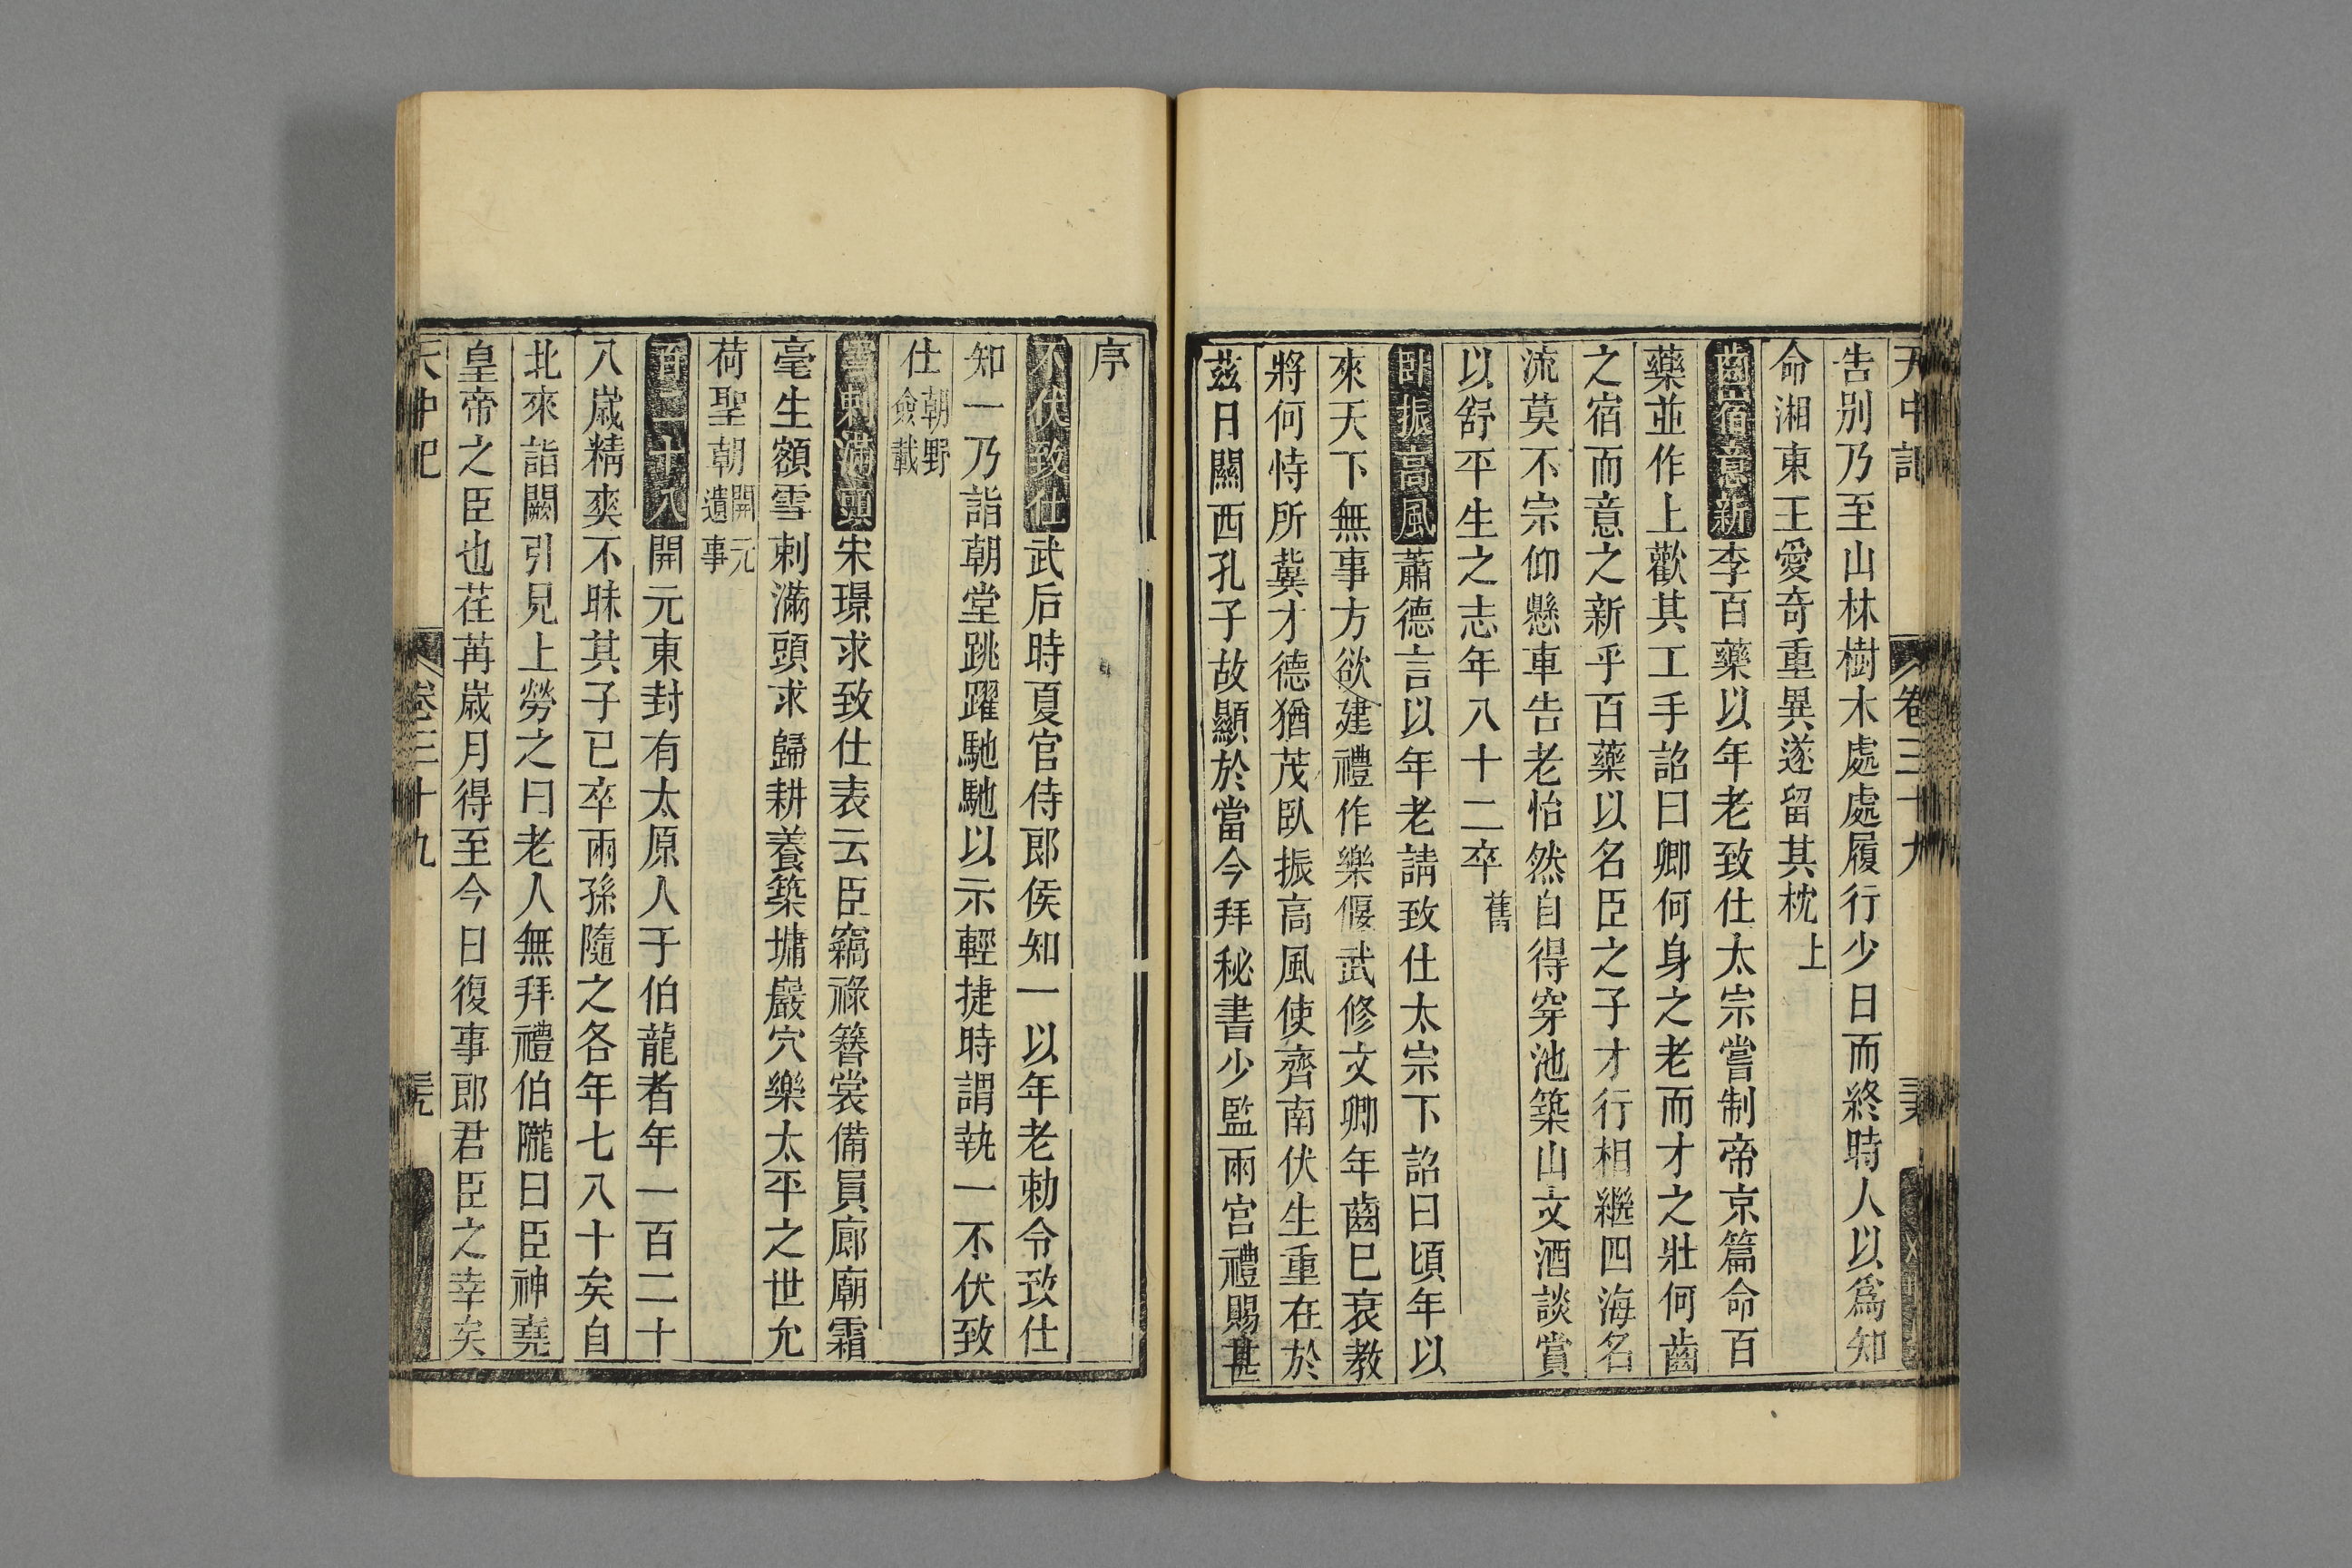 天中記 卷三十九
告別乃至山林樹木處處履行少日而終時人以爲知
命湘東王愛奇重異遂留其枕上
齒宿意新李百藥以年老致仕太宗嘗制帝京篇命百
藥並作上歡其工手詔曰卿何身之老而才之壯何齒
之宿而意之新乎百藥以名臣之子才行相繼四海名
流莫不宗仰懸車告老怡然自得穿池築山文酒談賞
以舒平生之志年八十二卒舊
卧振高風蕭德言以年老請致仕太宗下詔曰頃年以
來天下無事方欲建禮作樂偃武修文卿年齒已衰教
將何恃所冀才德猶茂臥振高風使齊南伏生重在於
茲日關西孔子故顯於當今拜秘書少監兩宮禮賜甚
序
不伏致仕武后時夏官侍郎侯知一以年老勅令致仕
知一乃詣朝堂跳躍馳馳以示輕捷時謂執一不伏致
仕朝野僉載
雪刺滿頭宋璟求致仕表云臣竊祿簪裳備員廊廟霜
毫生額雪刺滿頭求歸耕養築墉巖穴樂太平之世允
荷聖朝開元遺事
百二十八開元東封有太原人于伯龍者年一百二十
八歲精爽不昧其子已卒兩孫隨之各年七八十矣自
北來詣闕引見上勞之曰老人無拜禮伯隴曰臣神堯
皇帝之臣也荏苒歲月得至今日復事郎君臣之幸矣
天中記 卷三十九